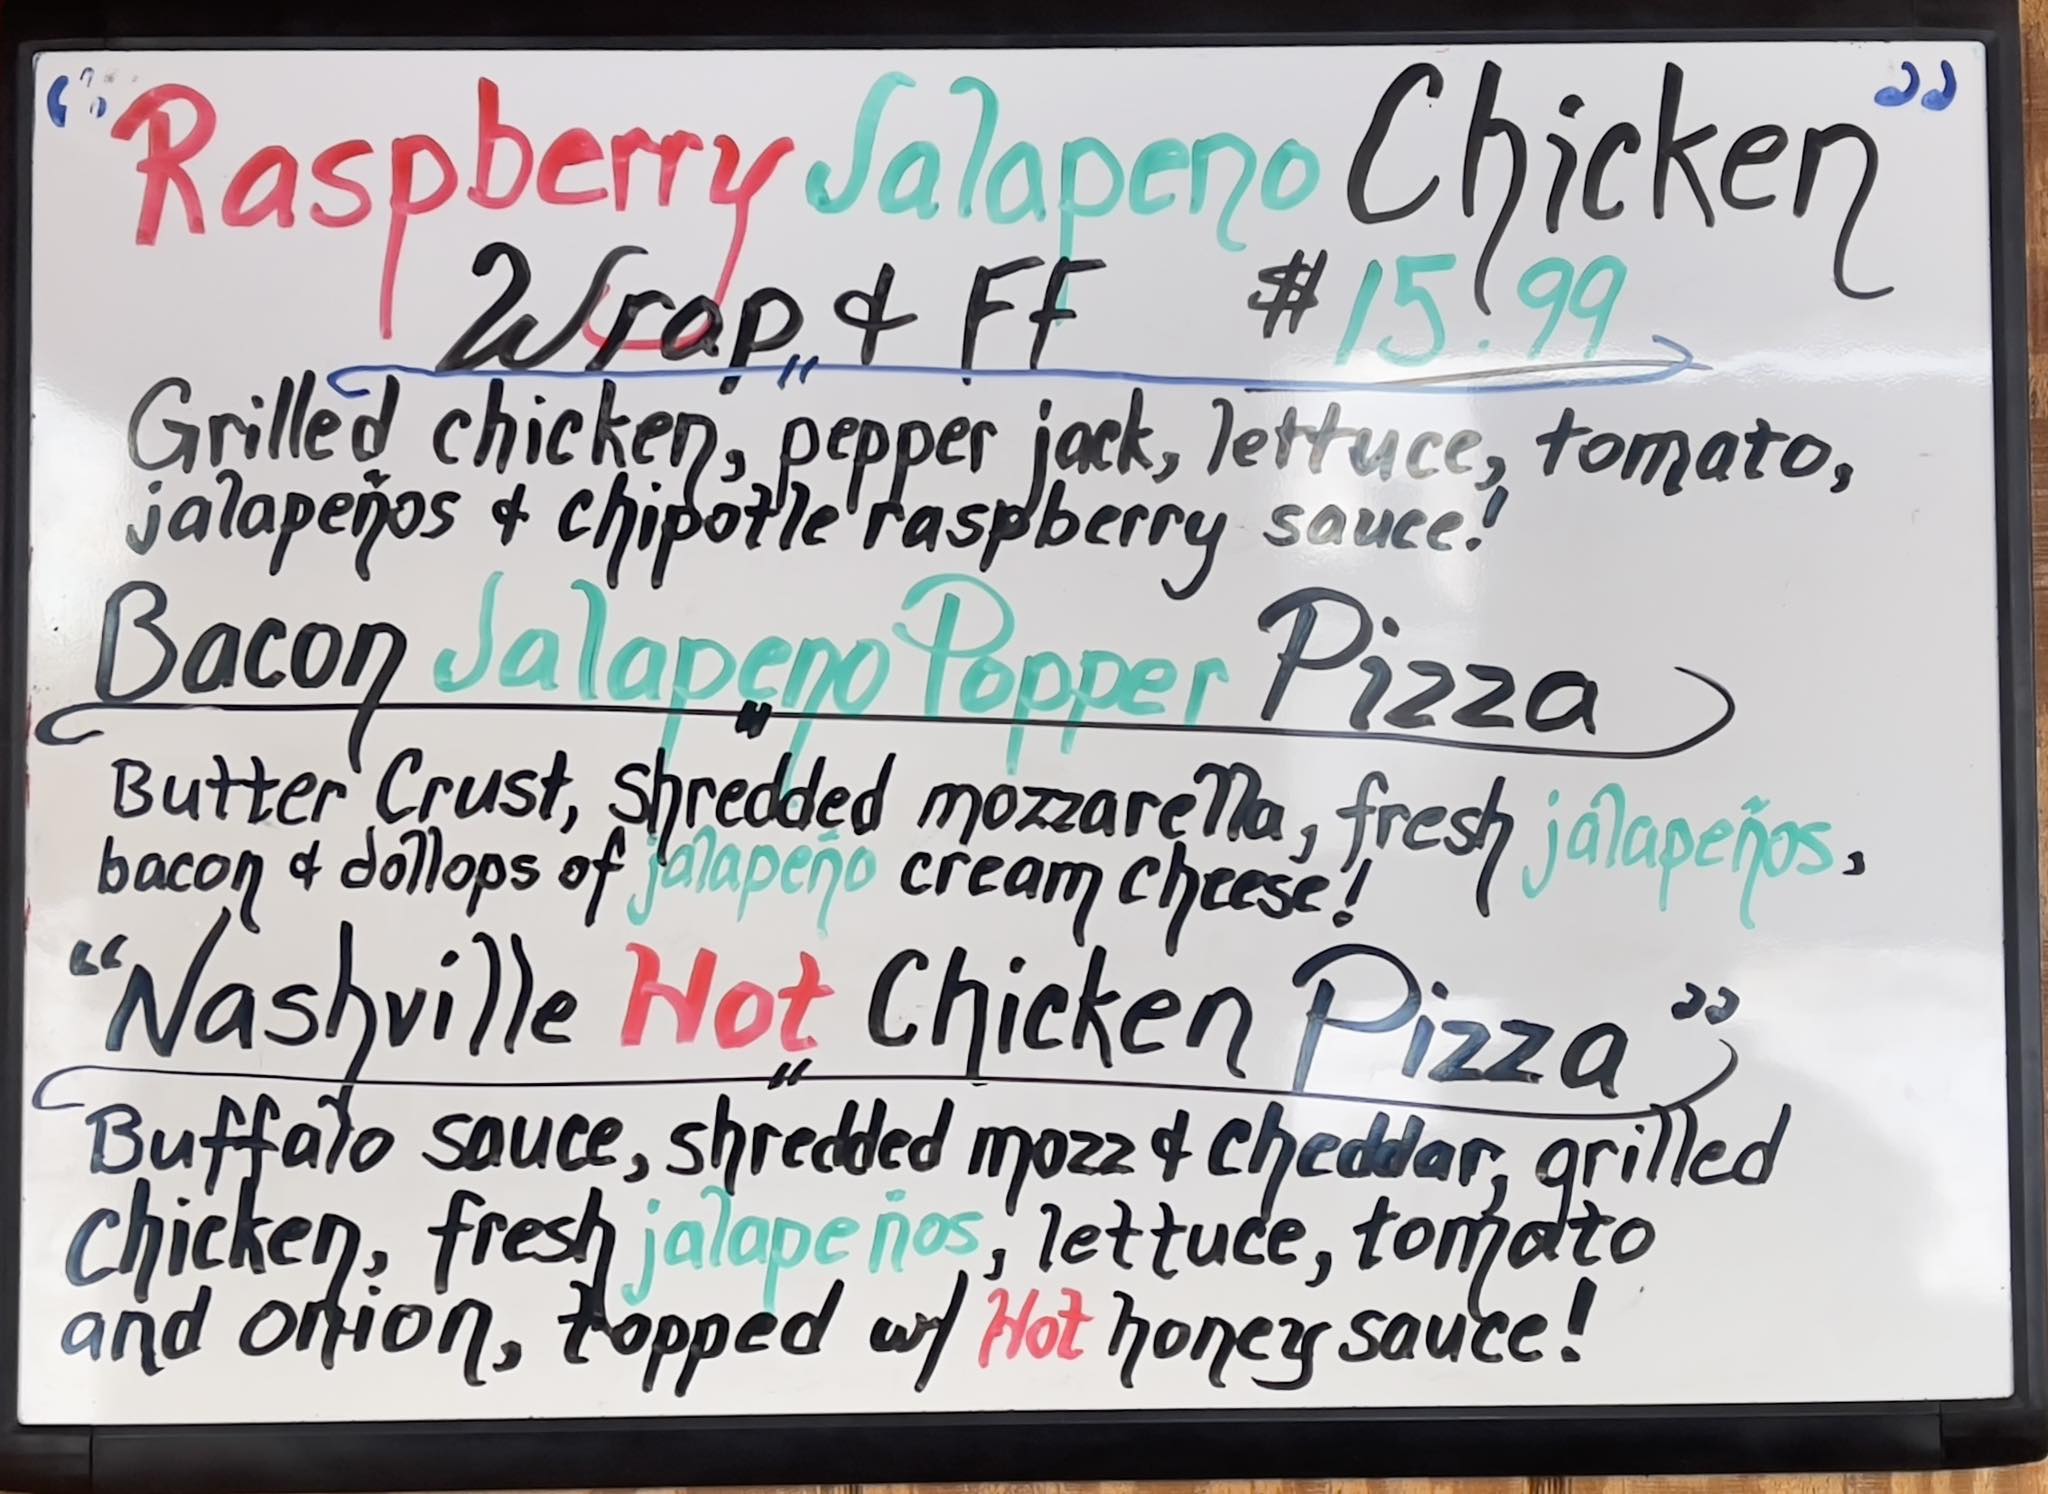 “Raspberry Jalapeno Chicken”
Wrap & FF $15.99
Grilled chicken, pepper jack, lettuce, tomato,
jalapeños & chipotle raspberry sauce!
Bacon Jalapeno Popper Pizza
Butter Crust, shredded mozzarella, fresh jalapeños,
bacon & dollops of jalapeño cream cheese!
“Nashville Hot Chicken Pizza”
Buffalo sauce, shredded mozz & cheddar, grilled
chicken, fresh jalapeños, lettuce, tomato
and onion, topped w/ Hot honey sauce!